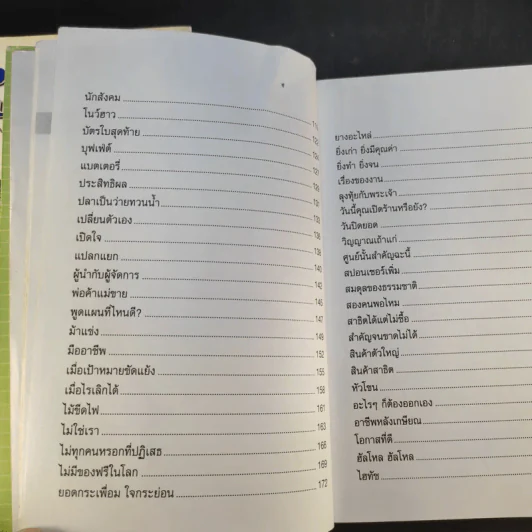 นักสังคม
โนว์ฮาว
บัตรใบสุดท้าย
บุฟเฟ่ต์
แบตเตอรี่
ประสิทธิผล
ปลาเป็นว่ายทวนน้ำ
เปลี่ยนตัวเอง 133
เปิดใจ 136
แปลกแยก 140
ผู้นำกับผู้จัดการ 142
พ่อค้าแม่ขาย 145
พูดแผนที่ไหนดี? 147
ม้าแข่ง 149
มืออาชีพ 152
เมื่อเป้าหมายขัดแย้ง 155
เมื่อไรเลิกได้ 158
ไม้ขีดไฟ 161
ไม่ใช่เรา 163
ไม่ทุกคนหรอกที่ปฏิเสธ 166
ไม่มีของฟรีในโลก 169
ยอดกระเพื่อม ใจกระย่อน 172
ยางอะไหล่
ยิ่งเก่า ยิ่งมีคุณค่า
ยิ่งทำ ยิ่งจน
เรื่องของงาน
ลุงทุ้ยกับพระเจ้า
วันนี้คุณเปิดร้านหรือยัง?
วันปิดยอด
วิญญาณเถ้าแก่
ศูนย์นั้นสำคัญฉะนี้
สปอนเซอร์เพิ่ม
สมดุลของธรรมชาติ
สองคนพอไหม
สาธิตได้แต่ไม่ซื้อ
สำคัญจนขาดไม่ได้
สินค้าตัวใหญ่
สินค้าสาธิต
หัวโขน
อะไรๆ ก็ต้องออกเอง
อาชีพหลังเกษียณ
โอกาสที่ดี
ฮัลโหล ฮัลโหล
ไฮทัช